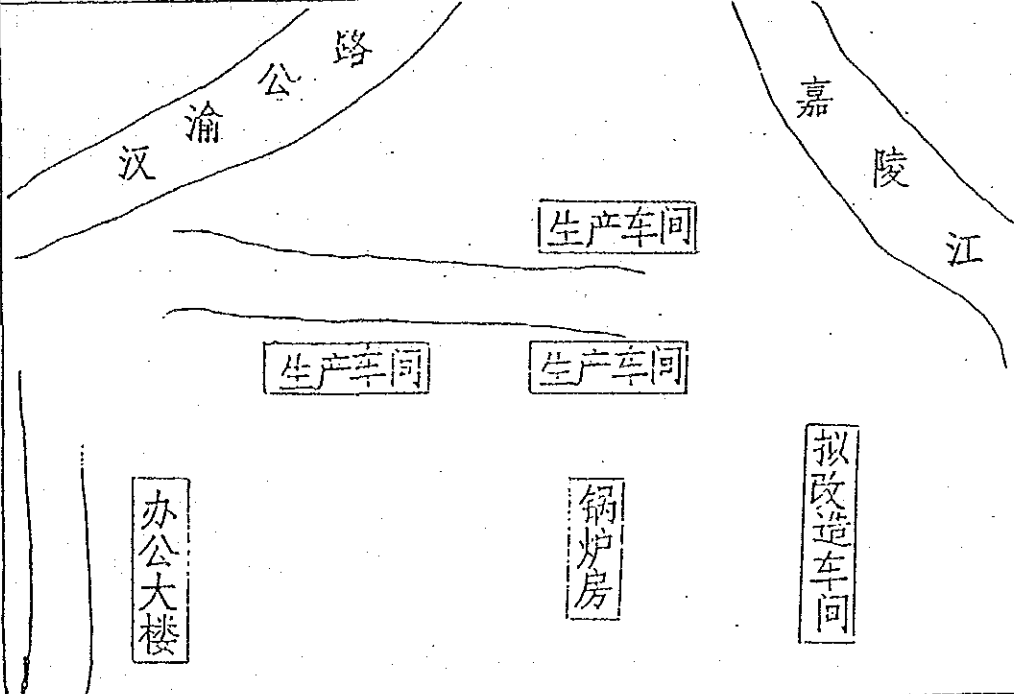 汉渝公路
嘉陵江
生产车间
生产车间
生产车间
办公大楼
锅炉房
拟改造车间